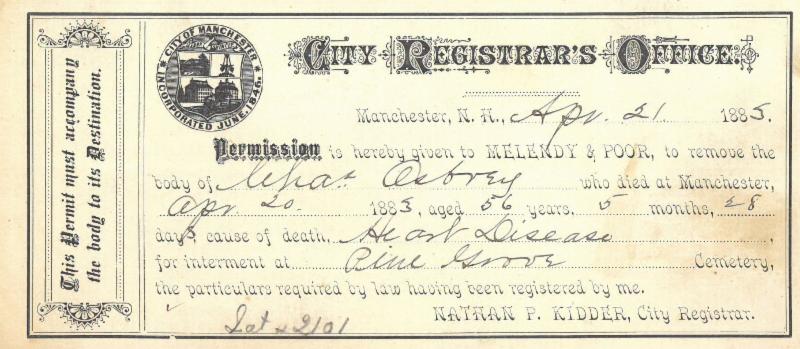 This Permit must accompany
the body to its Destination.
CITY OF MANCHESTER
INCORPORATED JUNE. 1846.
CITY REGISTRAR'S OFFICE.
Manchester, N. H., Apr. 21 1885.
Permission is hereby given to MELENDY & POOR, to remove the
body of Chas Osbrey who died at Manchester,
Apr 20 1885, aged 56 years, 5 months, 28
days, cause of death, Heart Disease,
for interment at Pine Grove Cemetery,
the particulars required by law having been registered by me.
NATHAN P. KIDDER, City Registrar.
Lot 2101